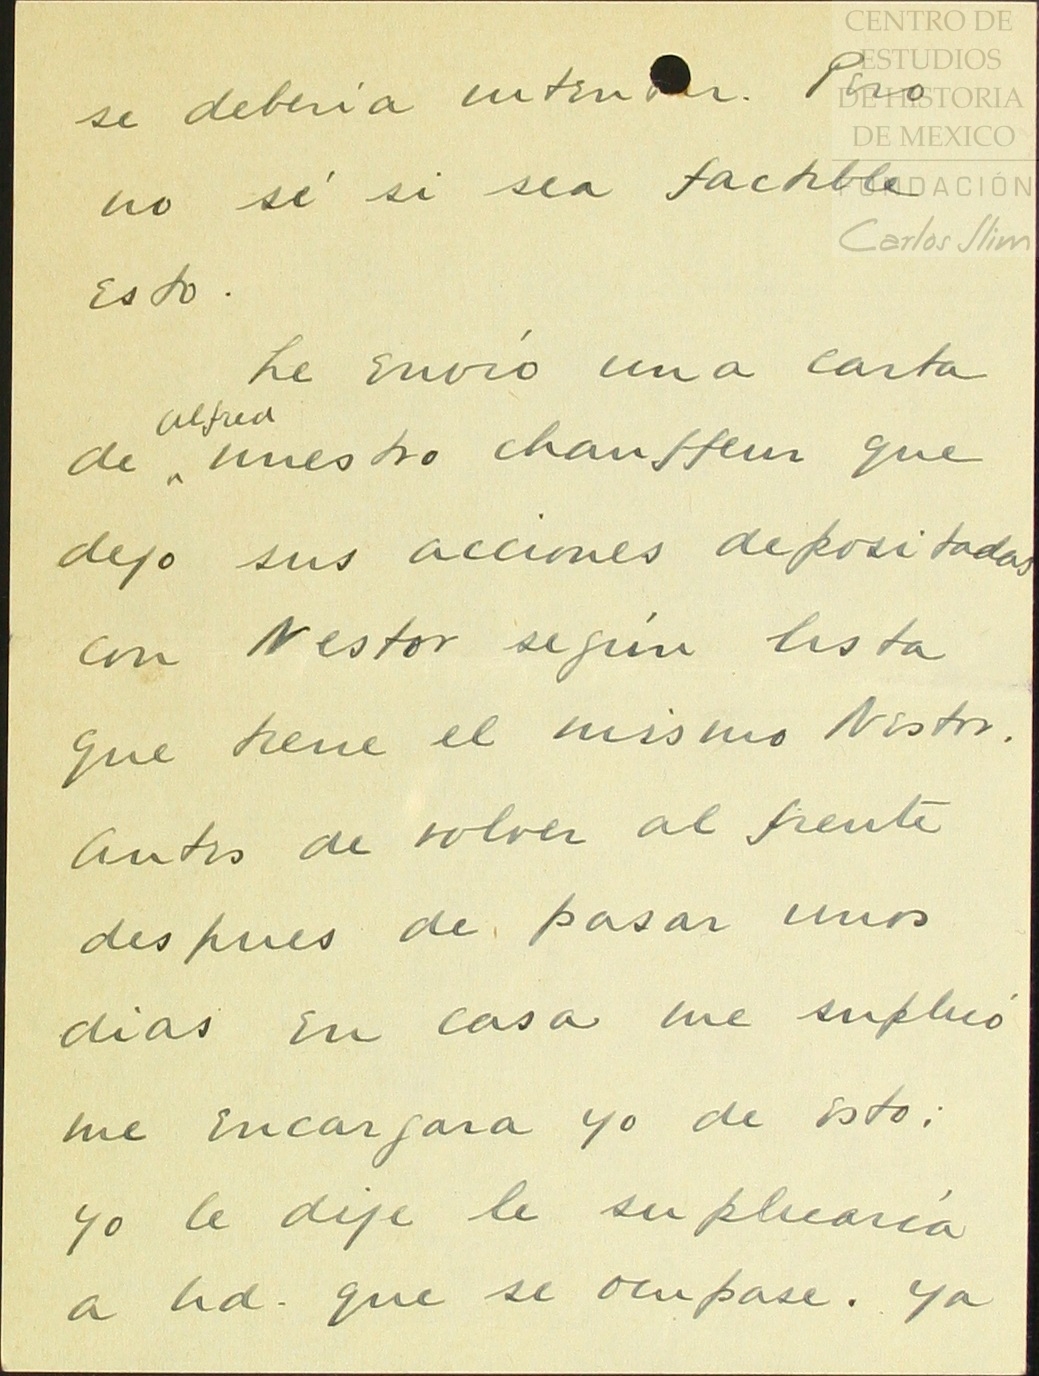 CENTRO DE
ESTUDIOS
DE HISTORIA
DE MEXICO
FUNDACIÓN
Carlos Slim
se deberia intentar. Pero
no sé si sea factible
esto.
Le envío una carta
de Alfred nuestro chauffeur que
dejo sus acciones depositadas
con Nestor según lista
que tiene el mismo Nestor.
Antes de volver al frente
despues de pasar unos
dias en casa me suplicó
me encargara yo de esto;
yo le dije le suplicaría
a Ud. que se ocupase. Ya